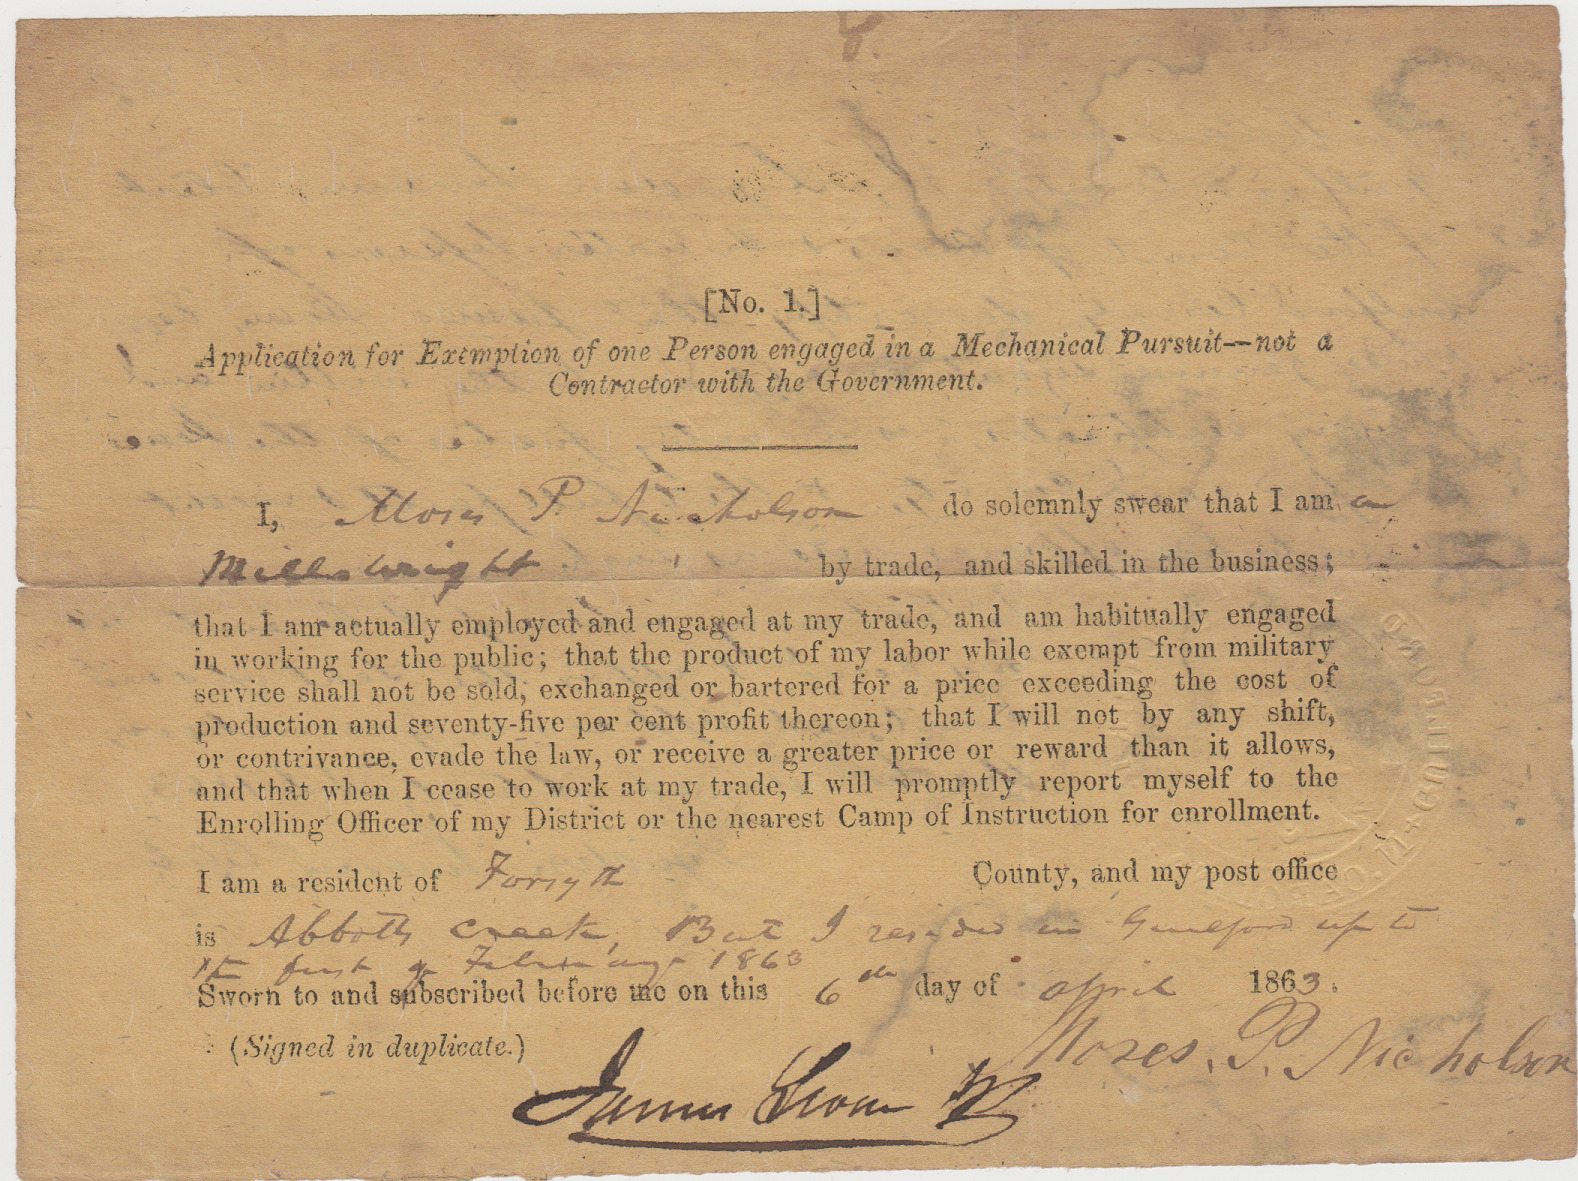 [No. 1.]
Application for Exemption of one Person engaged in a Mechanical Pursuit—not a
Contractor with the Government.
I, Moses P. Nicholson do solemnly swear that I am a
Millswright by trade, and skilled in the business;
that I am actually employed and engaged at my trade, and am habitually engaged
in working for the public; that the product of my labor while exempt from military
service shall not be sold, exchanged or bartered for a price exceeding the cost of
production and seventy-five per cent profit thereon; that I will not by any shift,
or contrivance, evade the law, or receive a greater price or reward than it allows,
and that when I cease to work at my trade, I will promptly report myself to the
Enrolling Officer of my District or the nearest Camp of Instruction for enrollment.
I am a resident of Forsyth County, and my post office
is Abbotts Creek, But I resided in Guilford up to
first of February 1863
Sworn to and subscribed before me on this 6th day of April 1863.
(Signed in duplicate.) Moses. P. Nicholson
James